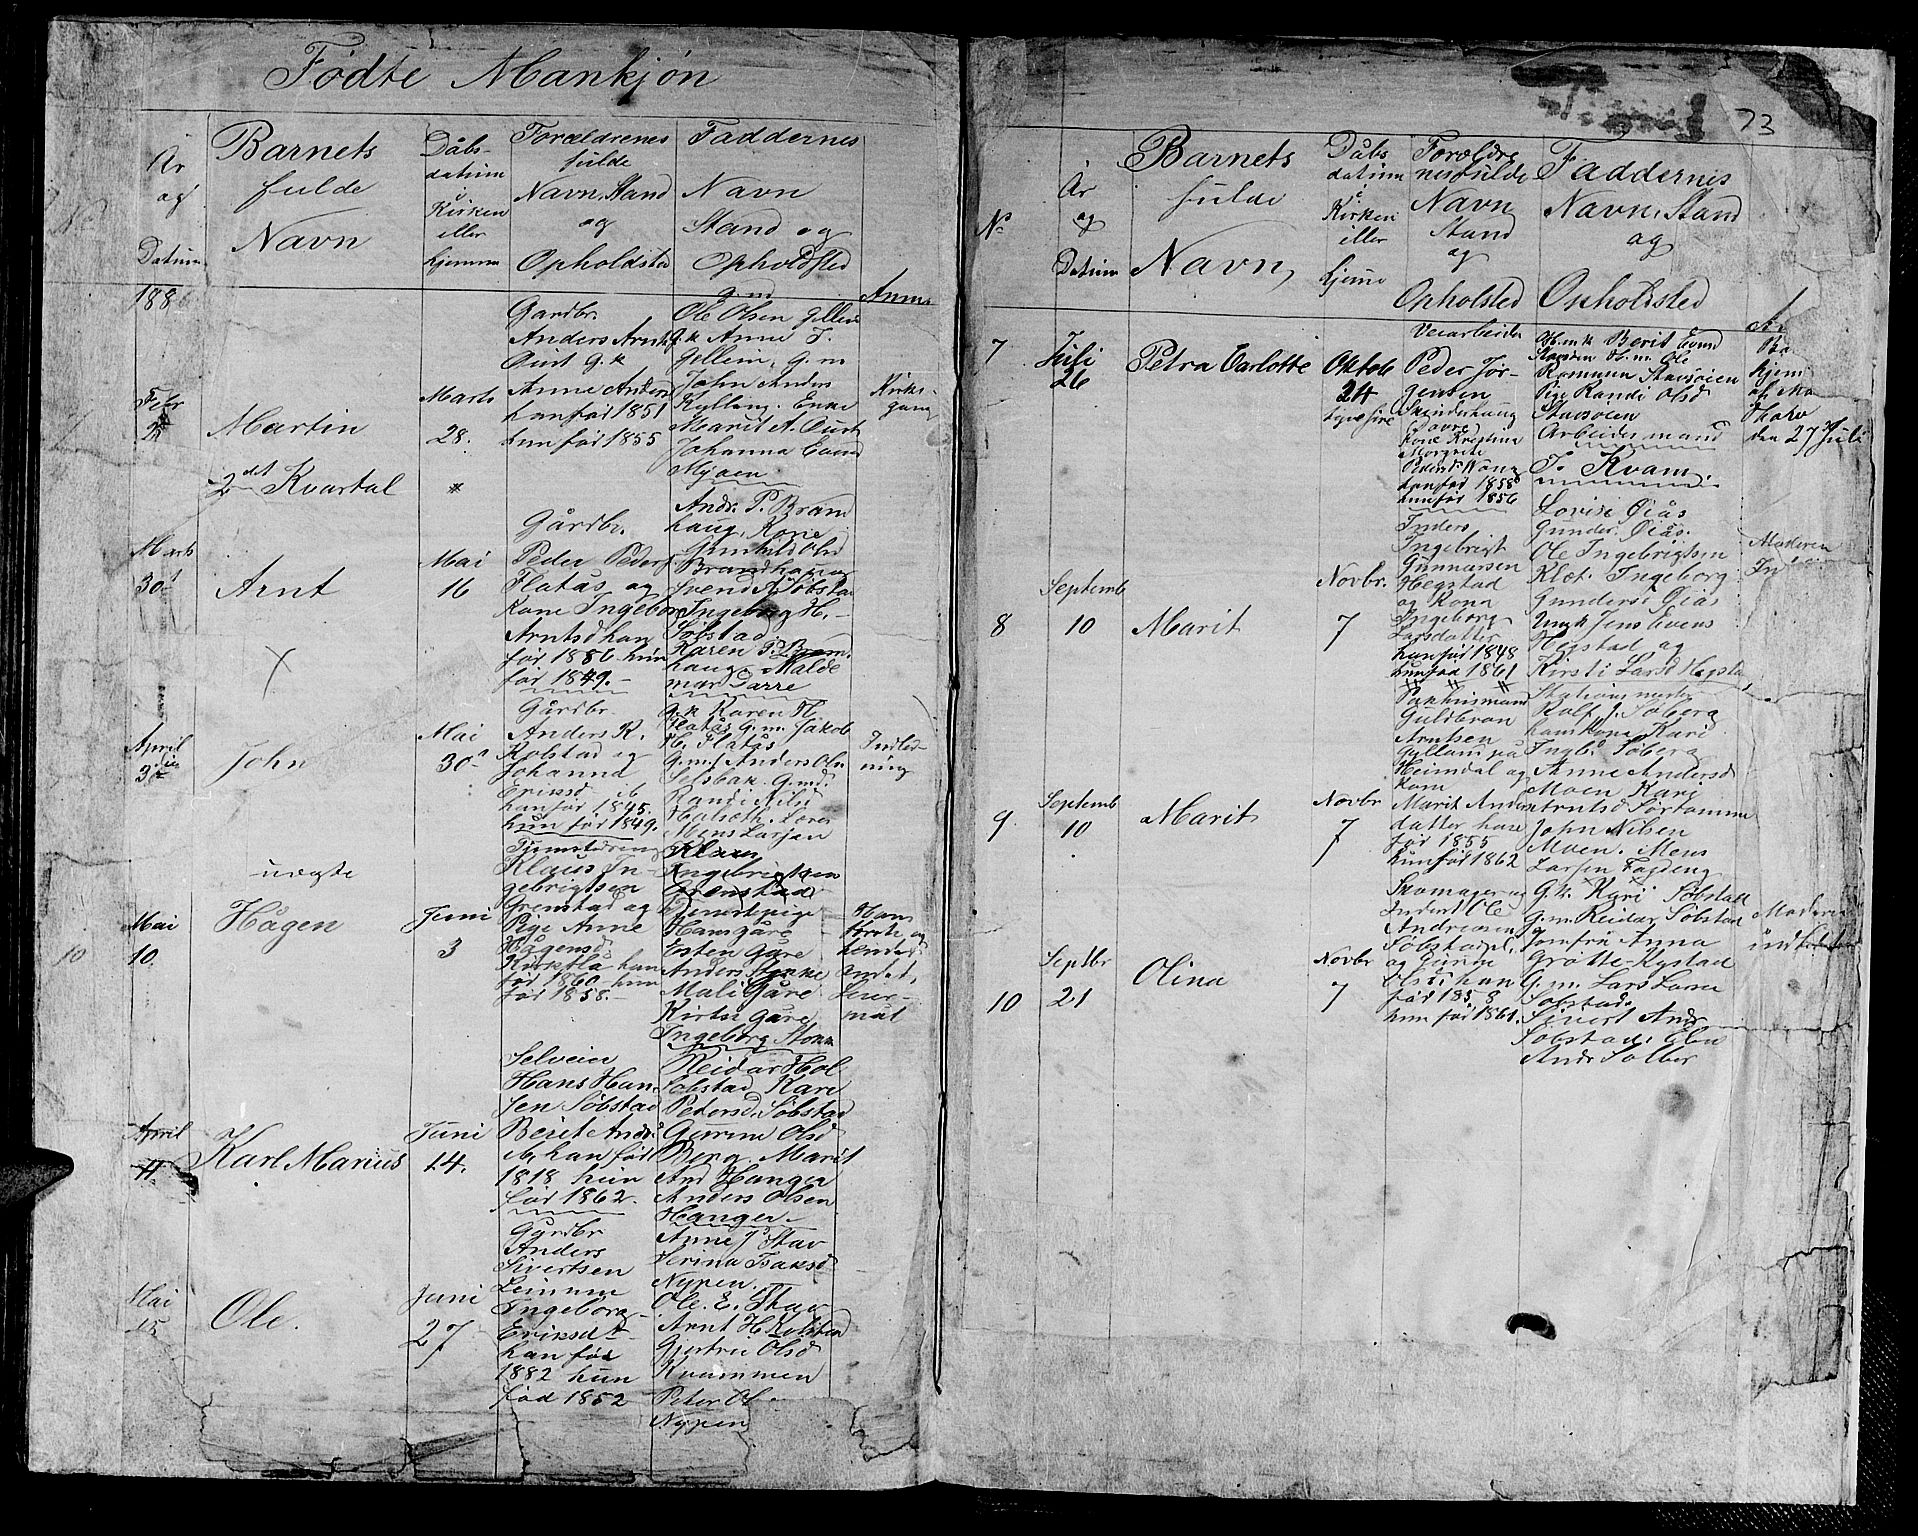 Fødte Mankjøn
År
og
Datum
Barnets
fulde
Navn
Dåbs-
datum
i
Kirken
eller
hjemme
Forældrenes
fulde
Navn, Stand
og
Opholdsted
Faddernes
Navn
Stand og
Opholdsted
Anm.
188
Febr
Martin
Marts
28.
Gardbr.
Anders Arnts
Oust g.k
Anne Anders
han fød 1851
hun fød 1855
g.m
Ole Olsen Gellein
g.k Anne J.
Gellein, g.m
John Anders
Kylling. Enke
Marit A. Oust
Johanna Evend
Myaen
Kirke-
gang
2det Kvartal
Marts
30
Arnt
Mai
16
Gårdbr.
Peder Peders
Flatås og
Kone Ingebor
Arntsd han
fød 1886 hun
fød 1849.-
Andr. P. Bram
haug, Kone
Gunhild Olsd
Bramhaug
Svend A Søbstad
Ingebrig H.-
Søbstad
Karen P. Bram-
haug. Valde
mar Darre
April
3
John
Mai
30
Gårdbr
Anders K.
Kolstad og
Johanna
Eriksd ib
han fød 1845
hun fød 1849.
g.k Karen H.
Flatås g.m. Jakob
H. Flatås
g.m. Anders Ols
Selsbak. g.md.
Randi Nilsd
Halseth. Lærer
Mons Larsen
Indled-
ning
uægte
10
Mai
10.
Hågen
Juni
3
Klaus In-
gebrigtsen
Grenstad og
Pige Anne
Hågensd
han
fød 1860 hun
fød 1858.-
Klaus
Ingebrigtsen
Grenstad
Tjenestpige
Esten Gåre
Anders Stokke
Mali Gåre
Kirsti Gåre
Ingeborg Stokk
Hans
første og
hendes
andet,
Leier-
mål
April
11.
Karl Marius
Juni
14.
Selveier
Hans Han-
sen Søbstad
Berit Andr.
ib. han fød
1818 hun
fød 1862.
Reidar Hol
Søbstad Kari
Petersd. Søbstad
Gurine Olsd
Berg. Marit
And Hanger
Anders Olsen
Hanger-
Mai
15
Ole.
Juni
27
Gårdbr
Anders
Sivertsen
Leinum
Ingeborg
Eriksdt
han fød
1882 hun
fød 1852
Anne J Stav
Serina Isaksd
Nypen.
Ole. E. Stav
Arnt H Kolstad
Gjertru Olsd
Kvammen
Peter Ol
Nypen
73
No
År
og
Datum
Barnets
fulde
Navn,
Dåbs
datum
i
Kirken
eller
hjeme
Forældre
nes fulde
Navn
Stand
og
Opholsted
Faddernes
Navn, Stand
og
Opholdsted
7
Juli
26
Petra Carlotte
Oktob
24
Veiarbeider
Peder Jør-
gensen
Skinderhaug
Dovre
Kone Kristina
Margrete
Pedersd Haug
han fød 1858
hun fød 1856
H.m.k Berit Evend
H.m. Ole
Romunn Stavsøien
Pige Randi Olsd
Stavsøien
Arbeidermand
T. Kvam
hjem
den 27 Juli
8
Septemb
10
Marit
Novbr.
7
Inders
Ingebrigt
Gunnarsen
Hegstad
og Kona
Ingeborg
Larsdatter
han fød 1848
hun fød 1861
Lovise Øiås
Gunder Øiås.
Ole Ingebrigtsen
Klæt. Ingeborg
Gunders Øiås
Ungk Jens Evens
Hegstad og
Kirsti Larsd Hegsta
Moderen
9
Septemb
10
Marit
Novbr
7
Pakhusmand
Guldbran
Arntsen
Gilland på
Heimdal og
Kone
Marit Anders
datter han
fød 1855
hun fød 1862
Stationsmester
Rolf J. Søberg
hans Kone Kari
Ingb. Søberg
Anne Andersd
Moen Kari
Arntsd Sørtømme
John Nilsen
Moen. Mons
Larsen
10
Septbr
21
Olina
Novbr
7
Skomager og
Inderst Ole
Andreasen
Søbstadpl.
og Gurine
Olsd, han
fød 1858
hun fød 1861.
G.k. Kari Søbstad
G.m. Reidar Søbstad
Jomfru Anna
Grøtte-Kystad
G.m. Lars Larse
Søbstad.
Sivert Andr
Søbstad, Elen
Andr Solber
Moderen
indledet